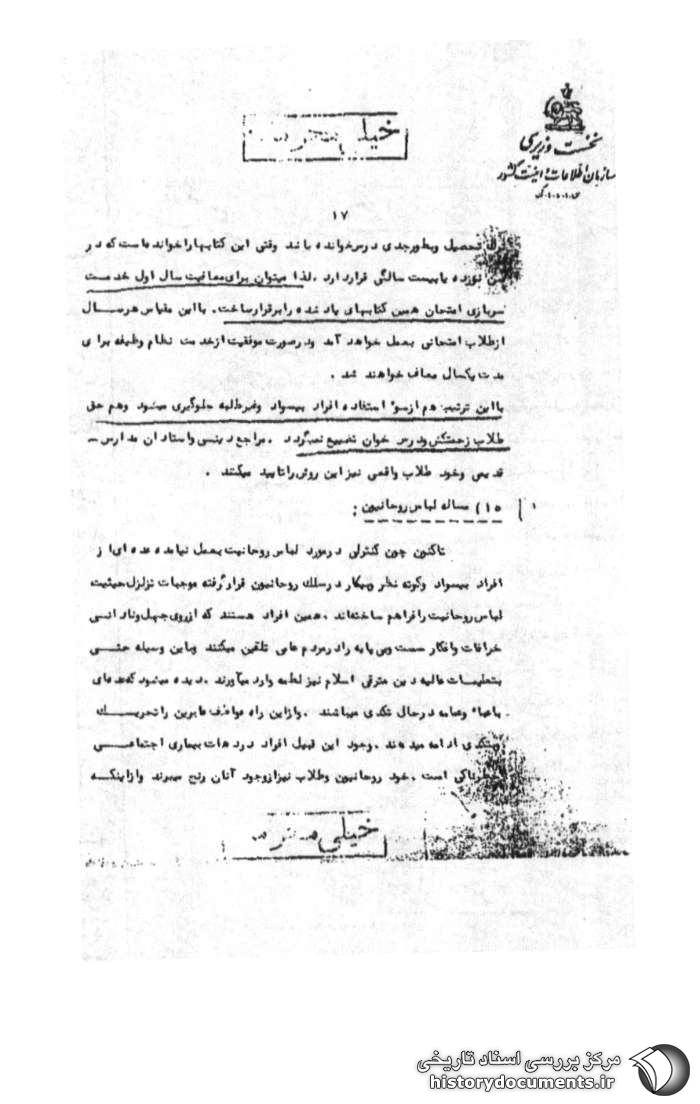 خیلی محرمانه
نخست وزیری
سازمان اطلاعات و امنیت کشور
۱۷
تحصیل وبطورجدی درس خوانده باشد وقتی این کتابهارا خوانده است که در
سن نوزده یابیست سالگی قراردارد . لذا میتوان برای معافیت سال اول خدمت
سربازی امتحان همین کتابهای یاد شده رابرقرارساخت . بااین مقیاس هرسال
ازطلاب امتحانی بعمل خواهد آمد ودرصورت موفقیت ازخدمت نظام وظیفه برای
مدت یکسال معاف خواهند شد .
بااین ترتیب هم ازسوء استفاده افراد بیسواد وغیرطلبه جلوگیری میشود وهم حق
طلاب زحمتکش ودرس خوان تضییع نمیگردد . مراجع دینی واستادان مدارس
قدیمی وخود طلاب واقعی نیز این روش راتایید میکنند .
۱۵) مساله لباس روحانیون :
تاکنون چون کنترلی درمورد لباس روحانیت بعمل نیامده عده ای از
افراد بیسواد وکوته نظر وبیکار درسلک روحانیون قرارگرفته موجبات تزلزل حیثیت
لباس روحانیت رافراهم ساخته‌اند . همین افراد هستند که ازروی جهل ونادانسی
خرافات وافکار سست وبی پایه رادرمردم عامی تلقین میکنند وباین وسیله حتی
بتعلیمات عالیه دین مترقی اسلام نیز لطمه وارد میآورند . دیده میشود که عده‌ای
باعباء وعمامه درحال تکدی میباشند . وازاین راه عواطف عابرین راتحریک
وبتکدی ادامه میدهند . وجود این قبیل افراد دردهات بیماری اجتماعی
خطرناکی است . خود روحانیون وطلاب نیزازوجود آنان رنج میبرند وازاینکه
خیلی محرمانه
مرکز بررسی اسناد تاریخی
historydocuments.ir